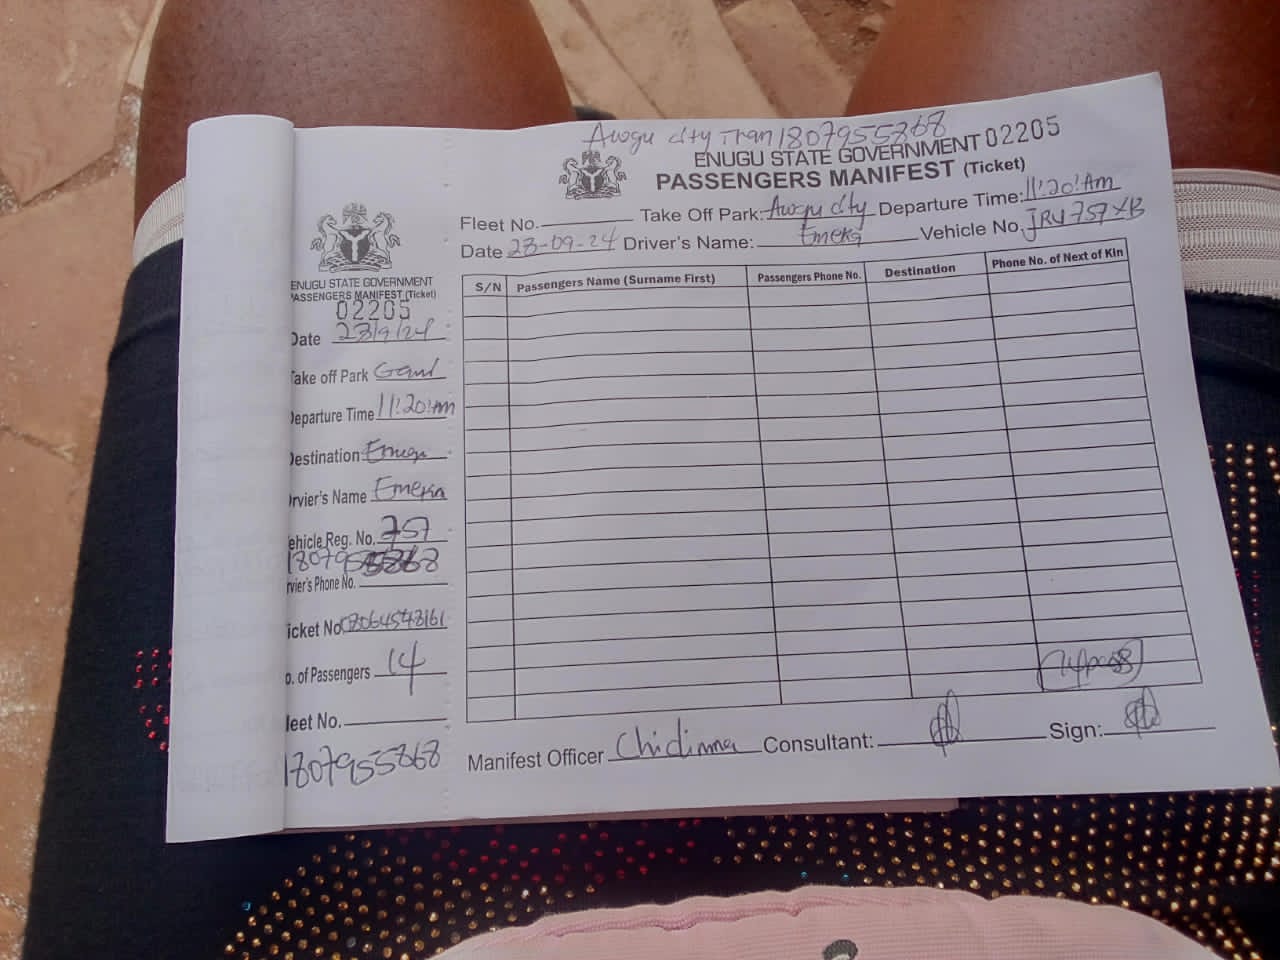 Awgu city Tran 1807955868
ENUGU STATE GOVERNMENT 02205
PASSENGERS MANIFEST (Ticket)
Fleet No. Take Off Park: Awgu city Departure Time: 11:20:Am
Date 23-09-24 Driver's Name: Emeka Vehicle No. JRV 757 YB
S/N Passengers Name (Surname First) Passengers Phone No. Destination Phone No. of Next of Kin
14pass
Manifest Officer Chidinma Consultant: Sign:
ENUGU STATE GOVERNMENT
PASSENGERS MANIFEST (Ticket)
02205
Date 23/9/24
Take off Park
Departure Time 11:20:Am
Destination Enugu
Drvier's Name Emeka
Vehicle Reg. No. 757
1807955868
Drvier's Phone No.
Ticket No 08064548161
No. of Passengers 14
Fleet No.
1807955868